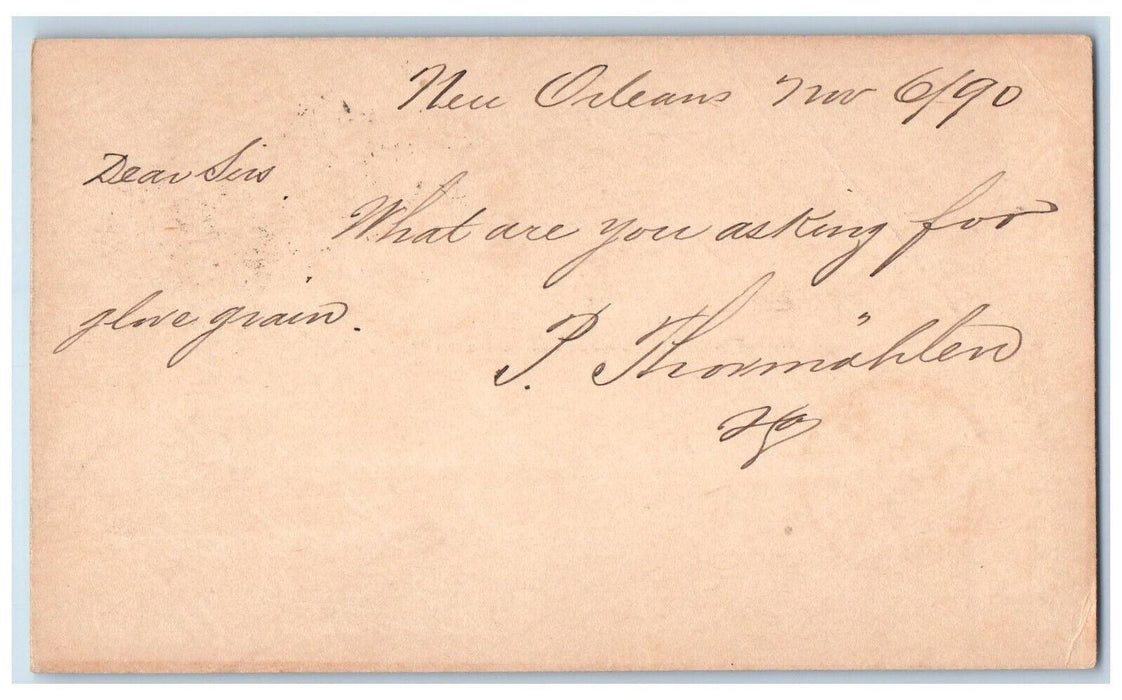 New Orleans Nov 6/90
Dear Sirs
What are you asking for
glove grain.
P. Thormählen